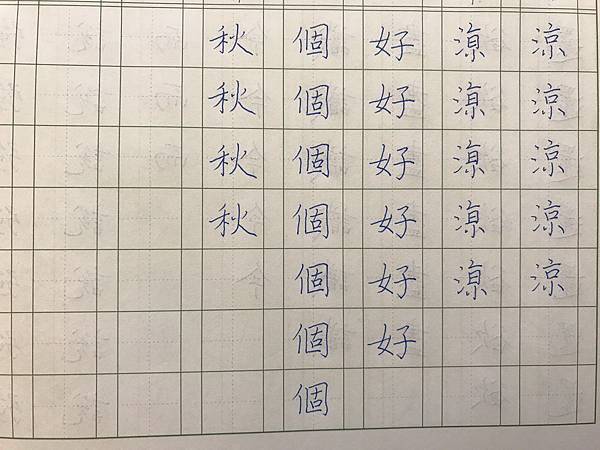 涼涼涼涼涼
涼涼涼涼涼
好好好好好好
個個個個個個個
秋秋秋秋